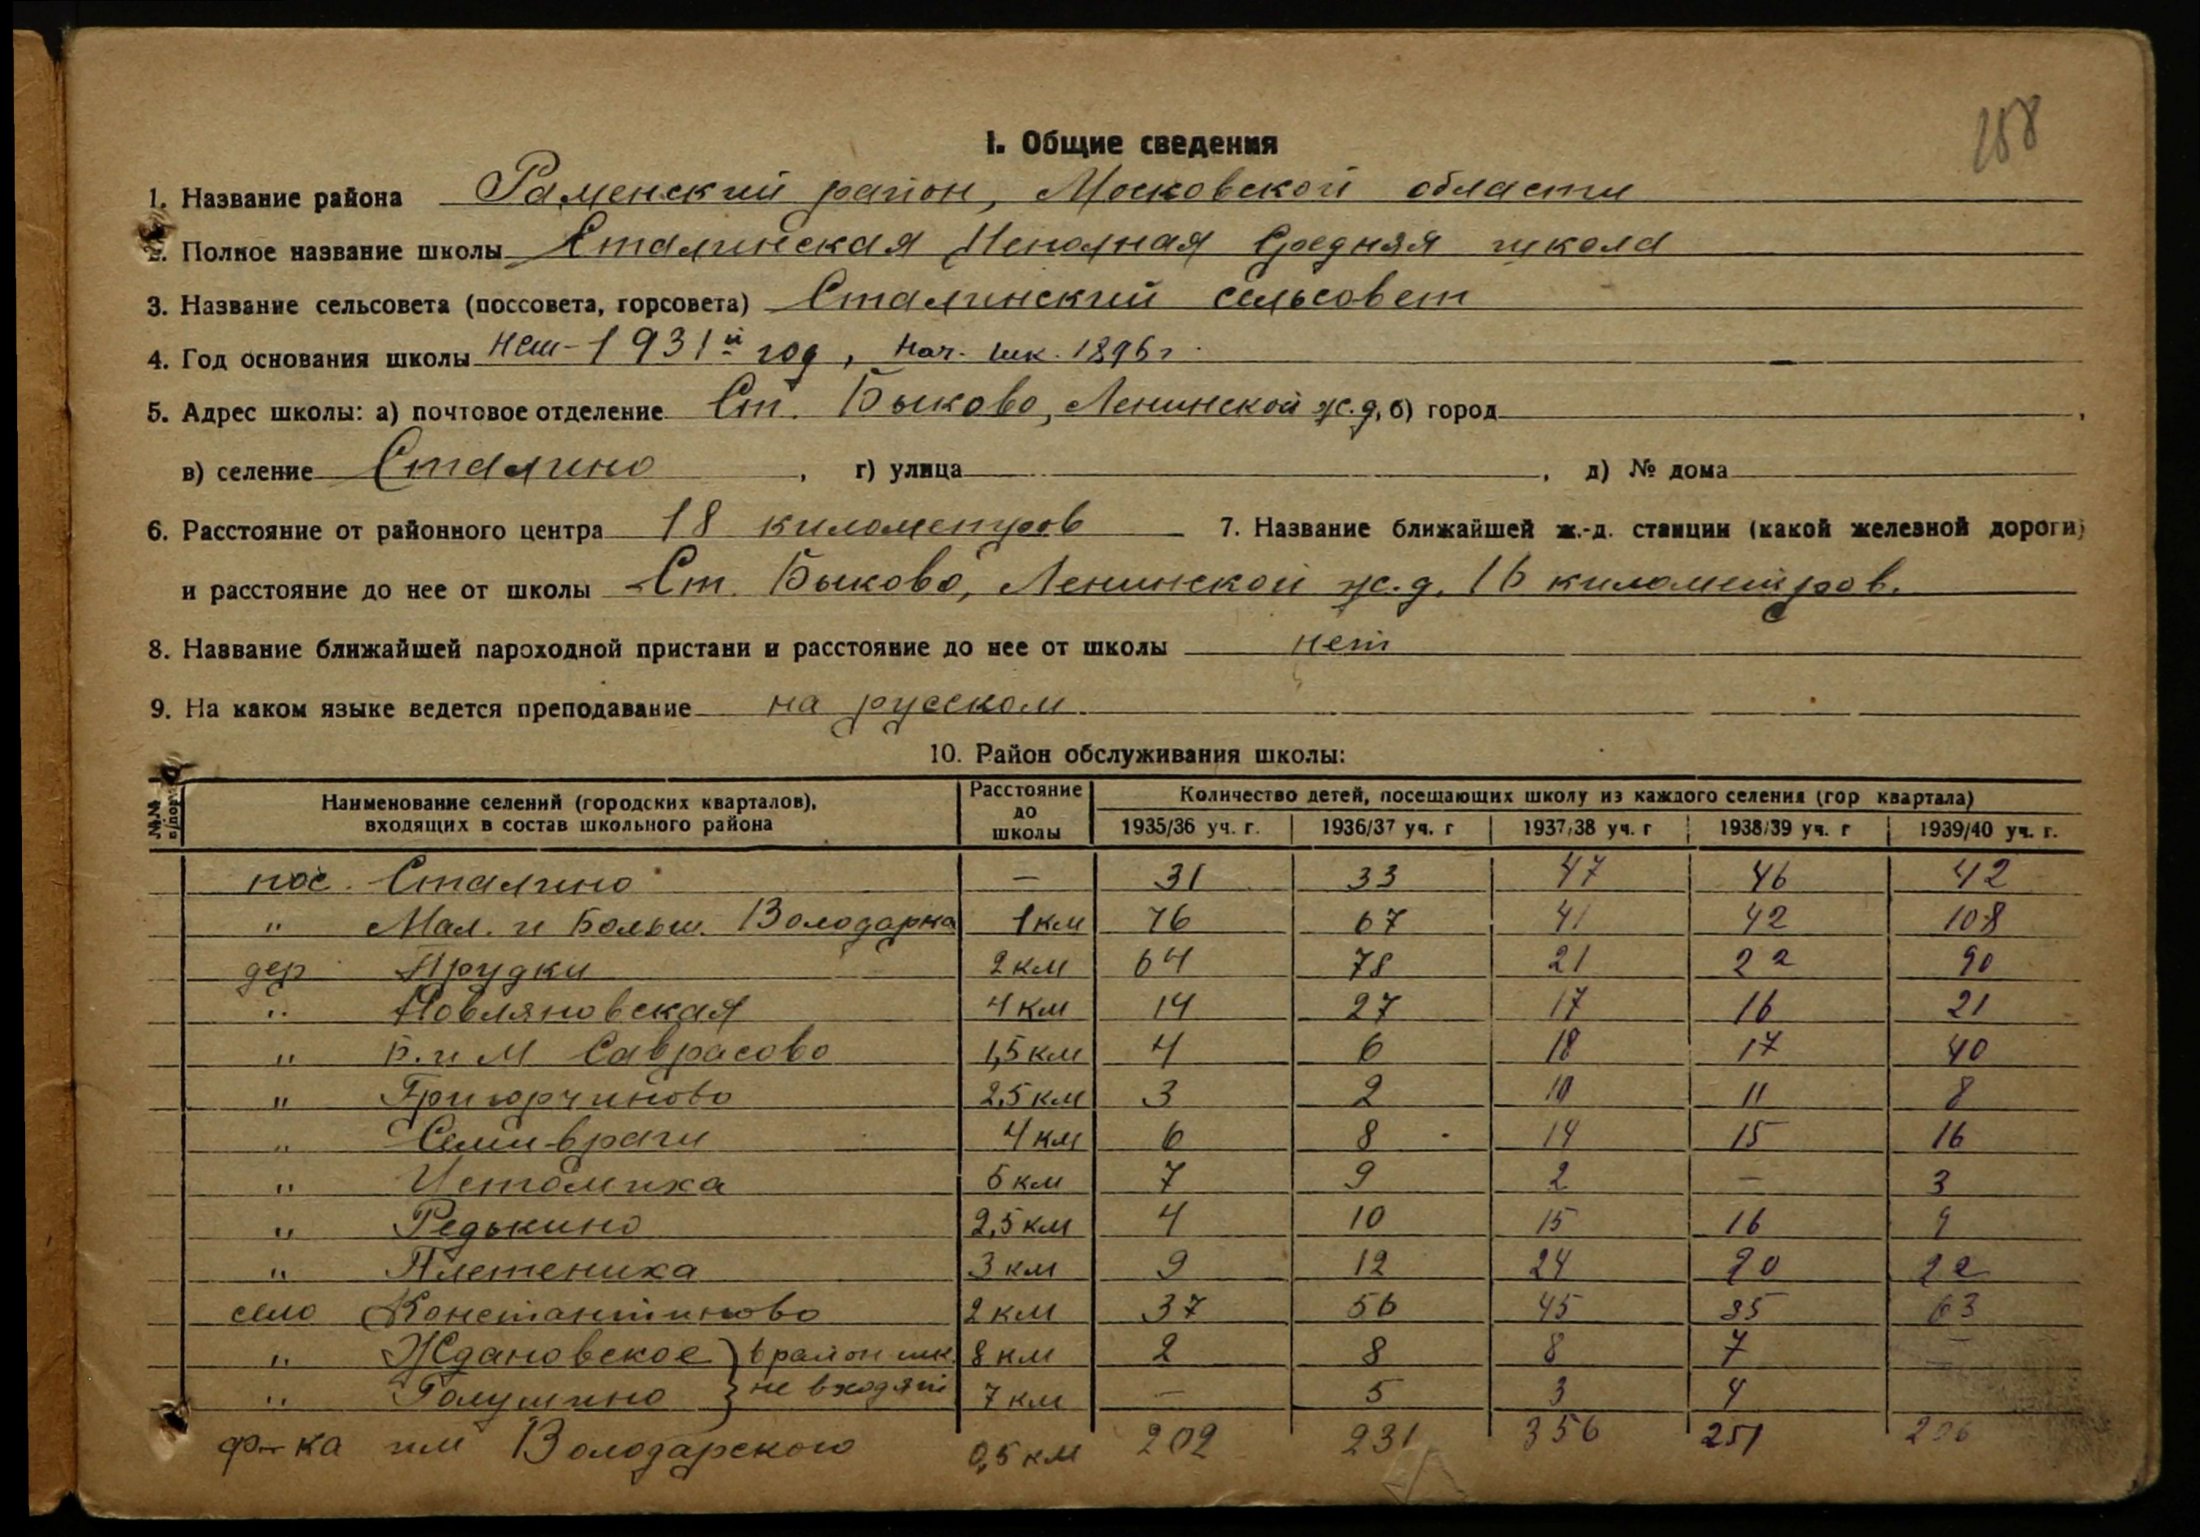 258
I. Общие сведения
1. Название района Раменский район, Московской области
2. Полное название школы Сталинская Неполная Средняя школа
3. Название сельсовета (поссовета, горсовета) Сталинский сельсовет
4. Год основания школы нсш-1931й год, нач. шк. 1896 г.
5. Адрес школы: а) почтовое отделение Ст. Быково, Ленинской ж.д, б) город ,
в) селение Сталино , г) улица , д) № дома
6. Расстояние от районного центра 18 километров 7. Название ближайшей ж.-д. станции (какой железной дороги)
и расстояние до нее от школы Ст. Быково, Ленинской ж.д. 16 километров.
8. Название ближайшей пароходной пристани и расстояние до нее от школы нет
9. На каком языке ведется преподавание на русском
10. Район обслуживания школы:
№№ п/пор. Наименование селений (городских кварталов), входящих в состав школьного района Расстояние до школы Количество детей, посещающих школу из каждого селения (гор квартала)
1935/36 уч. г. 1936/37 уч. г 1937/38 уч. г 1938/39 уч. г 1939/40 уч. г.
пос. Сталино — 31 33 47 46 42
" Мал. и Больш. Володарка 1 км 76 67 41 42 108
дер Прудки 2 км 64 78 21 22 90
" Новляновская 4 км 14 27 17 16 21
" Б. и М Саврасово 1,5 км 4 6 18 17 40
" Григорчиново 2,5 км 3 2 10 11 8
" Семивраги 4 км 6 8 14 15 16
" Истомиха 6 км 7 9 2 — 3
" Редькино 2,5 км 4 10 15 16 9
" Плетениха 3 км 9 12 24 20 22
село Константиново 2 км 37 56 45 35 63
" Ждановское } в район шк. 8 км 2 8 8 7 —
" Голушино } не входят 7 км — 5 3 4
ф-ка им Володарского 0,5 км 202 231 356 251